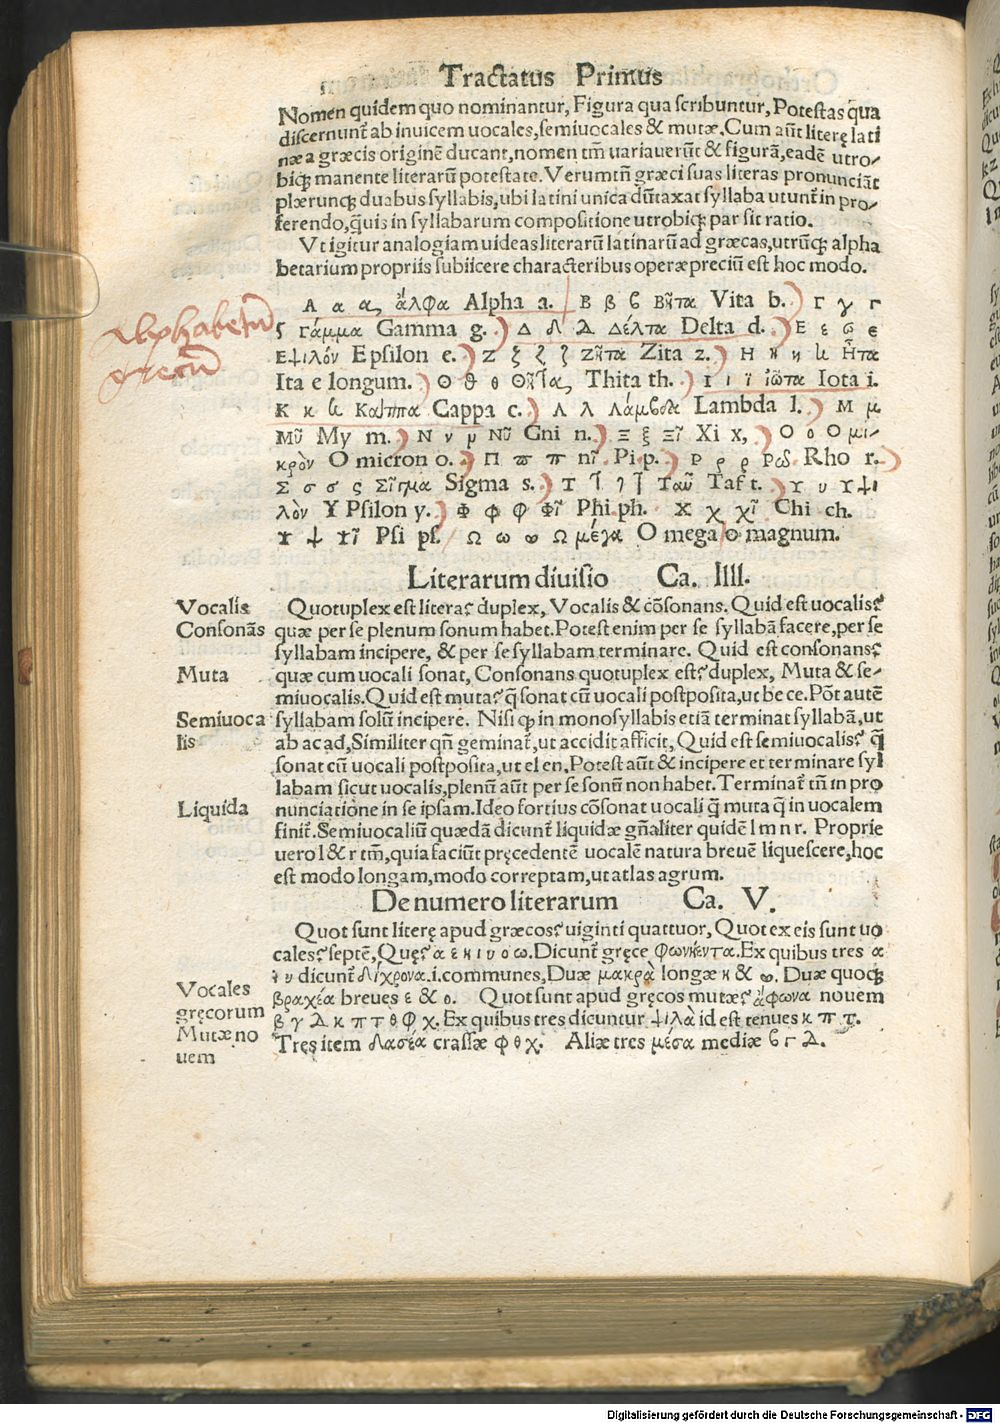 Tractatus Primus
Nomen quidem quo nominantur, Figura qua scribuntur, Potestas q̄ua
discernunt̄ ab inuicem uocales, semiuocales & mutæ, Cum aūt literę lati
næ a græcis originē ducant, nomen tm̄ uariauerūt & figurā, eadē utro-
biq; manente literarū potestate. Verumtn̄ græci suas literas pronunciāt
plærunq; duabus syllabis, ubi latini unica dūtaxat syllaba utunt̄ in pro-
ferendo, q̄uis in syllabarum compositione utrobiq; par sit ratio.
Vt igitur analogiam uideas literarū latinarū ad græcas, utrūq; alpha
betarium propriis subiicere characteribus operæpreciū est hoc modo.
Alphabetū
grecū
Α α α, ἄλφα Alpha a. Β β ϐ Βῆτα Vita b. Γ γ Γ
ς Γάμμα Gamma g. Δ δ Δ Δέλτα Delta d. Ε ε ω ϵ
Εψιλόν Epsilon e. Ζ ξ ζ ζ Ζῆτα Zita z. Η η η Ἦτα
Ita e longum. Θ ϑ θ Θῆτα, Thita th. Ι ι ϊ ἰῶτα Iota i.
Κ κ Κάππα Cappa c. Λ λ Λάμβδα Lambda l. Μ μ
Μῦ My m. Ν ν Νῦ Gni n. Ξ ξ Ξῖ Xi x, Ο ο Ο μι-
κρὸν O micron o. Π ϖ π πῖ Pi p. Ρ ρ ρ Ρω Rho r.
Σ σ σ ς Σῖγμα Sigma s. Τ Ταῦ Taf t. Υ υ Υψι
λὸν Y Psilon y. Φ φ φ Φῖ Phi ph. Χ χ χῖ Chi ch.
Ψ ψ Ψῖ Psi ps. Ω ω Ω μέγα O mega O magnum.
Literarum diuisio Ca. IIII.
Vocalis
Consonās
Muta
Semiuoca
lis
Liquida
Quotuplex est litera? duplex, Vocalis & cōsonans. Quid est uocalis?
quæ per se plenum sonum habet. Potest enim per se syllabā facere, per se
syllabam incipere, & per se syllabam terminare. Quid est consonans?
quæ cum uocali sonat, Consonans quotuplex est? duplex, Muta & se-
miuocalis. Quid est muta? q̄ sonat cū uocali postposita, ut be ce. Pōt autē
syllabam solū incipere. Nisi q̄ in monosyllabis etiā terminat syllabā, ut
ab ac ad, Similiter qn̄ geminat̄, ut accidit afficit, Quid est semiuocalis? q̄
sonat cū uocali postposita, ut el en, Potest aūt & incipere et terminare syl
labam sicut uocalis, plenū aūt per se sonū non habet. Terminat̄ tn̄ in pro
nunciatione in se ipsam. Ideo fortius cōsonat uocali q̄ muta q̄ in uocalem
finit̄. Semiuocaliū quædā dicunt̄ liquidæ gn̄aliter quidē l m n r. Proprie
uero l & r tm̄, quia faciūt pręcedentē uocalē natura breuē liquescere, hoc
est modo longam, modo correptam, ut atlas agrum.
De numero literarum Ca. V.
Vocales
gręcorum
Mutæ no
uem
Quot sunt literę apud græcos? uiginti quattuor, Quot ex eis sunt uo
cales? septē, Quę? α ε η ι υ ο ω. Dicunt̄ gręce φωνήεντα. Ex quibus tres α
ι υ dicunt̄ δίχρονα .i. communes, Duæ μακρὰ longæ η & ω. Duæ quoq;
βραχέα breues ε & ο. Quot sunt apud gręcos mutæ? ἄφωνα nouem
β γ δ κ π τ θ φ χ. Ex quibus tres dicuntur ψιλὰ id est tenues κ π τ.
Tręs item δασέα crassæ φ θ χ. Aliæ tres μέσα mediæ ϐ Γ Δ.
Digitalisierung gefördert durch die Deutsche Forschungsgemeinschaft - DFG